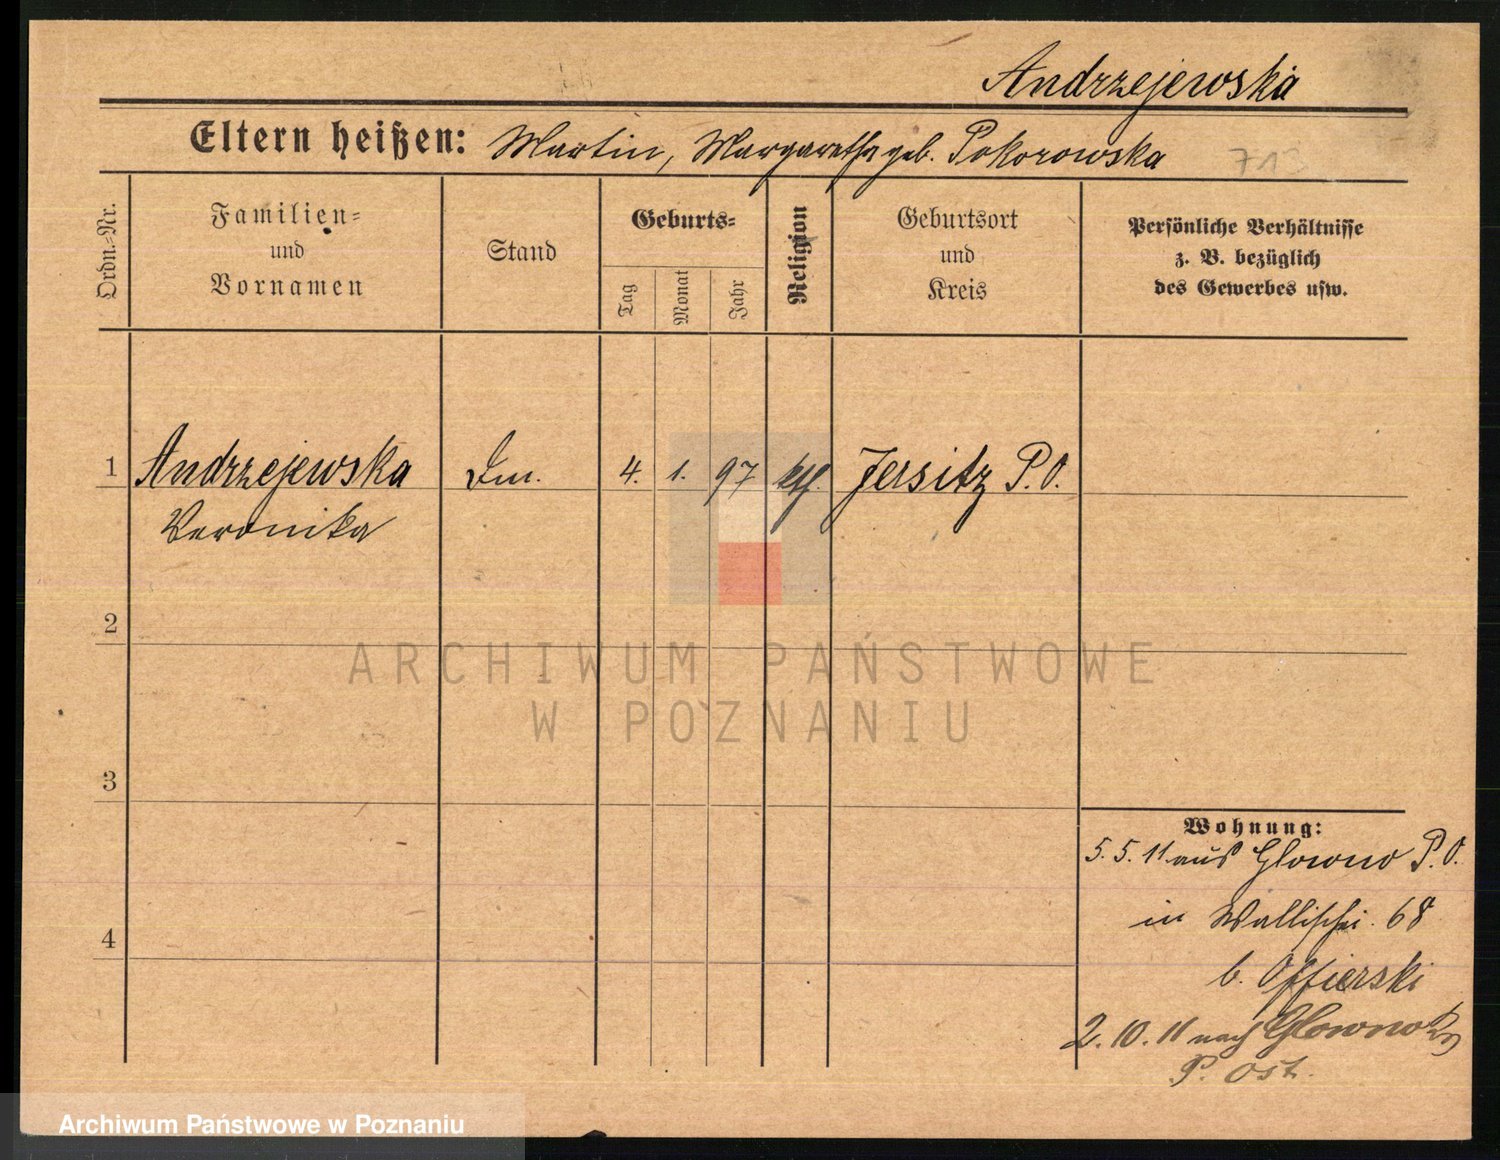 Andrzejewska
Eltern heißen: Martin, Margaretha geb. Pokorowska
713
Ordn.-Nr.
Familien-
und
Vornamen
Stand
Geburts-
Tag
Monat
Jahr
Religion
Geburtsort
und
Kreis
Persönliche Verhältnisse
z. B. bezüglich
des Gewerbes usw.
1 Andrzejewska 4. 1. 97 kth. Jersitz P. O.
Veronika
2
3
4
Wohnung:
5. 5. 11 aus Glowno P. O.
in Wallischei 68
b. Offierski
2. 10. 11 nach Glowno
P. Ost.
ARCHIWUM PAŃSTWOWE
W POZNANIU
Archiwum Państwowe w Poznaniu